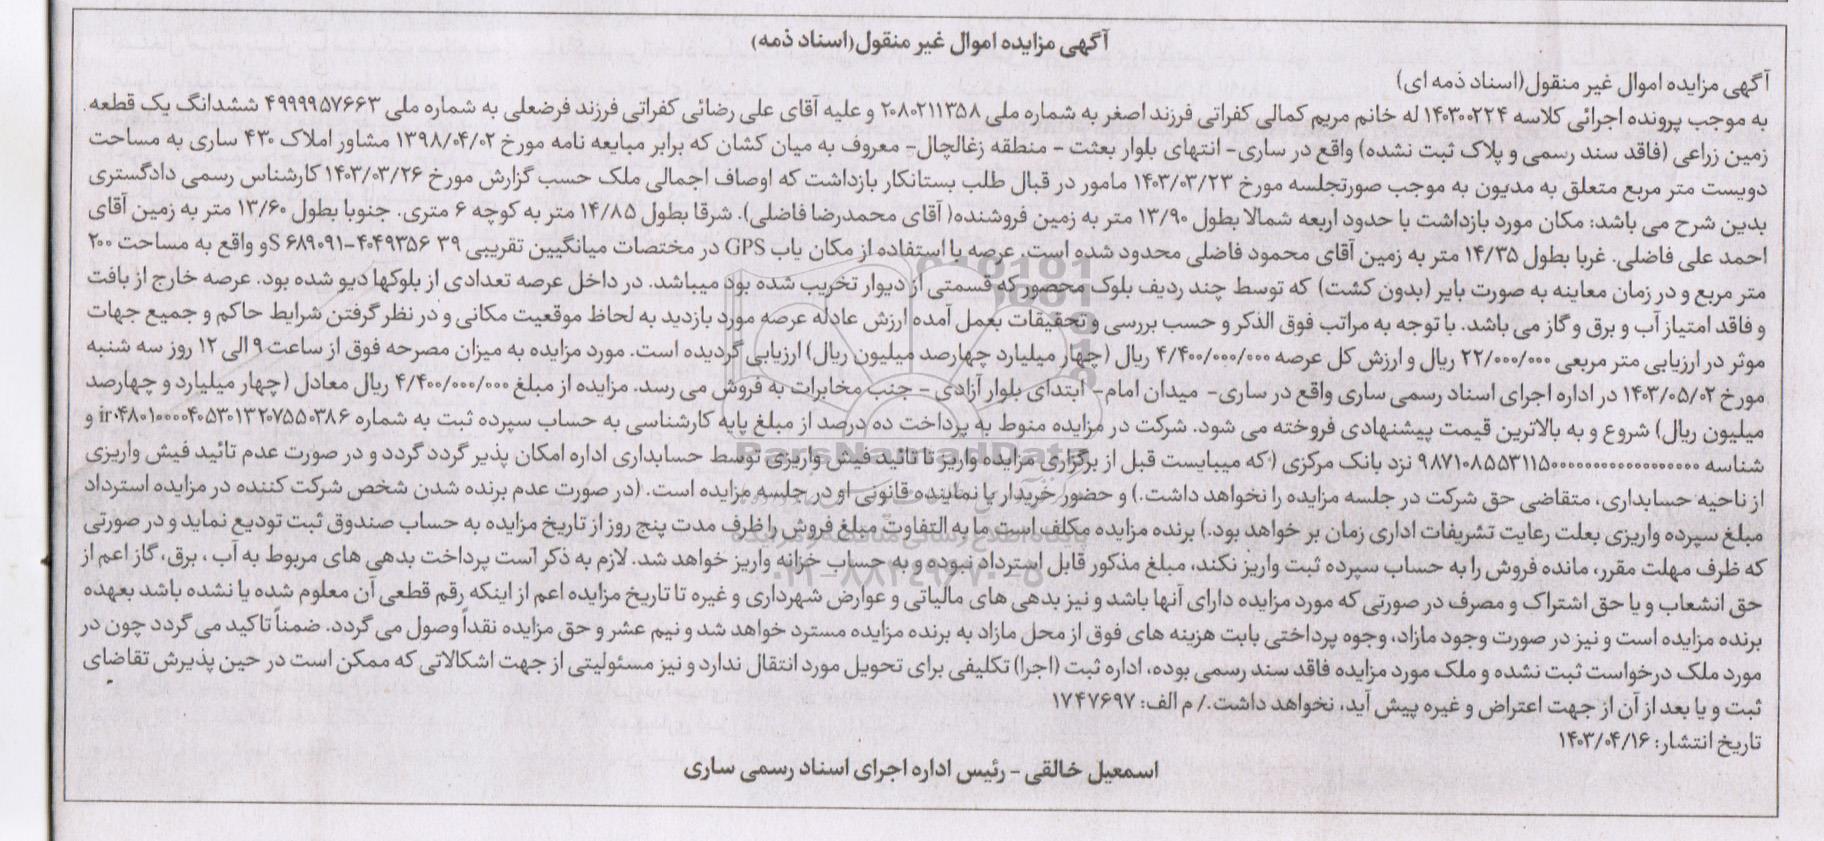 آگهی مزایده اموال غیر منقول(اسناد ذمه)
آگهی مزایده اموال غیر منقول(اسناد ذمه ای)
به موجب پرونده اجرائی کلاسه ۱۴۰۳۰۰۲۲۴ له خانم مریم کمالی کفراتی فرزند اصغر به شماره ملی ۲۰۸۰۲۱۱۳۵۸ و علیه آقای علی رضائی کفراتی فرزند فرضعلی به شماره ملی ۴۹۹۹۹۵۷۶۶۳ ششدانگ یک قطعه
زمین زراعی (فاقد سند رسمی و پلاک ثبت نشده) واقع در ساری- انتهای بلوار بعثت - منطقه زغالچال- معروف به میان کشان که برابر مبایعه نامه مورخ ۱۳۹۸/۰۴/۰۲ مشاور املاک ۴۳۰ ساری به مساحت
دویست متر مربع متعلق به مدیون به موجب صورتجلسه مورخ ۱۴۰۳/۰۳/۲۳ مامور در قبال طلب بستانکار بازداشت که اوصاف اجمالی ملک حسب گزارش مورخ ۱۴۰۳/۰۳/۲۶ کارشناس رسمی دادگستری
بدین شرح می باشد: مکان مورد بازداشت با حدود اربعه شمالا بطول ۱۳/۹۰ متر به زمین فروشنده( آقای محمدرضا فاضلی). شرقا بطول ۱۴/۸۵ متر به کوچه ۶ متری. جنوبا بطول ۱۳/۶۰ متر به زمین آقای
احمد علی فاضلی. غربا بطول ۱۴/۳۵ متر به زمین آقای محمود فاضلی محدود شده است. عرصه با استفاده از مکان یاب GPS در مختصات میانگیین تقریبی ۳۹ S ۶۸۹۰۹۱-۴۰۴۹۳۵۶ و واقع به مساحت ۲۰۰
متر مربع و در زمان معاینه به صورت بایر (بدون کشت) که توسط چند ردیف بلوک محصور که قسمتی از دیوار تخریب شده بود میباشد. در داخل عرصه تعدادی از بلوکها دپو شده بود. عرصه خارج از بافت
و فاقد امتیاز آب و برق و گاز می باشد. با توجه به مراتب فوق الذکر و حسب بررسی و تحقیقات بعمل آمده ارزش عادله عرصه مورد بازدید به لحاظ موقعیت مکانی و در نظر گرفتن شرایط حاکم و جمیع جهات
موثر در ارزیابی متر مربعی ۲۲/۰۰۰/۰۰۰ ریال و ارزش کل عرصه ۴/۴۰۰/۰۰۰/۰۰۰ ریال (چهار میلیارد چهارصد میلیون ریال) ارزیابی گردیده است. مورد مزایده به میزان مصرحه فوق از ساعت ۹ الی ۱۲ روز سه شنبه
مورخ ۱۴۰۳/۰۵/۰۲ در اداره اجرای اسناد رسمی ساری واقع در ساری- میدان امام- ابتدای بلوار آزادی - جنب مخابرات به فروش می رسد. مزایده از مبلغ ۴/۴۰۰/۰۰۰/۰۰۰ ریال معادل (چهار میلیارد و چهارصد
میلیون ریال) شروع و به بالاترین قیمت پیشنهادی فروخته می شود. شرکت در مزایده منوط به پرداخت ده درصد از مبلغ پایه کارشناسی به حساب سپرده ثبت به شماره و
شناسه نزد بانک مرکزی ( که میبایست قبل از برگزاری مزایده واریز تا تائید فیش واریزی توسط حسابداری اداره امکان پذیر گردد گردد و در صورت عدم تائید فیش واریزی
از ناحیه حسابداری، متقاضی حق شرکت در جلسه مزایده را نخواهد داشت.) و حضور خریدار یا نماینده قانونی او در جلسه مزایده است. (در صورت عدم برنده شدن شخص شرکت کننده در مزایده استرداد
مبلغ سپرده واریزی بعلت رعایت تشریفات اداری زمان بر خواهد بود.) برنده مزایده مکلف است ما به التفاوت مبلغ فروش را ظرف مدت پنج روز از تاریخ مزایده به حساب صندوق ثبت تودیع نماید و در صورتی
که ظرف مهلت مقرر، مانده فروش را به حساب سپرده ثبت واریز نکند، مبلغ مذکور قابل استرداد نبوده و به حساب خزانه واریز خواهد شد. لازم به ذکر است پرداخت بدهی های مربوط به آب ، برق، گاز اعم از
حق انشعاب و یا حق اشتراک و مصرف در صورتی که مورد مزایده دارای آنها باشد و نیز بدهی های مالیاتی و عوارض شهرداری و غیره تا تاریخ مزایده اعم از اینکه رقم قطعی آن معلوم شده یا نشده باشد بعهده
برنده مزایده است و نیز در صورت وجود مازاد، وجوه پرداختی بابت هزینه های فوق از محل مازاد به برنده مزایده مسترد خواهد شد و نیم عشر و حق مزایده نقداً وصول می گردد. ضمناً تاکید می گردد چون در
مورد ملک درخواست ثبت نشده و ملک مورد مزایده فاقد سند رسمی بوده، اداره ثبت (اجرا) تکلیفی برای تحویل مورد انتقال ندارد و نیز مسئولیتی از جهت اشکالاتی که ممکن است در حین پذیرش تقاضای
ثبت و یا بعد از آن از جهت اعتراض و غیره پیش آید، نخواهد داشت./ م الف: ۱۷۴۷۶۹۷
تاریخ انتشار: ۱۴۰۳/۰۴/۱۶
اسمعیل خالقی - رئیس اداره اجرای اسناد رسمی ساری
ParsNamadData